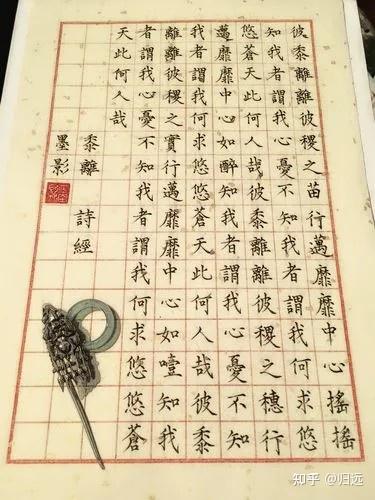 彼黍離離彼稷之苗行邁靡靡中心搖搖
知我者謂我心憂不知我者謂我何求悠
悠蒼天此何人哉彼黍離離彼稷之穗行
邁靡靡中心如醉知我者謂我心憂不知
我者謂我何求悠悠蒼天此何人哉彼黍
離離彼稷之實行邁靡靡中心如噎知我
者謂我心憂不知我者謂我何求悠悠蒼
天此何人哉
黍離 詩經
墨影
知乎 @归远